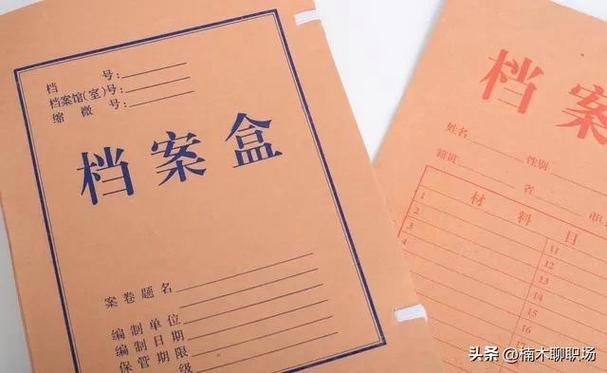 档 号:
档案馆(室)号:
缩 微 号:
档案盒
案卷题名
编制单位
编制日期
保管期限
级
档案
姓名 性别
籍贯 省
材 料 目
1
2
3
4
11
12
13
14
15
16
17
头条 @楠木聊职场